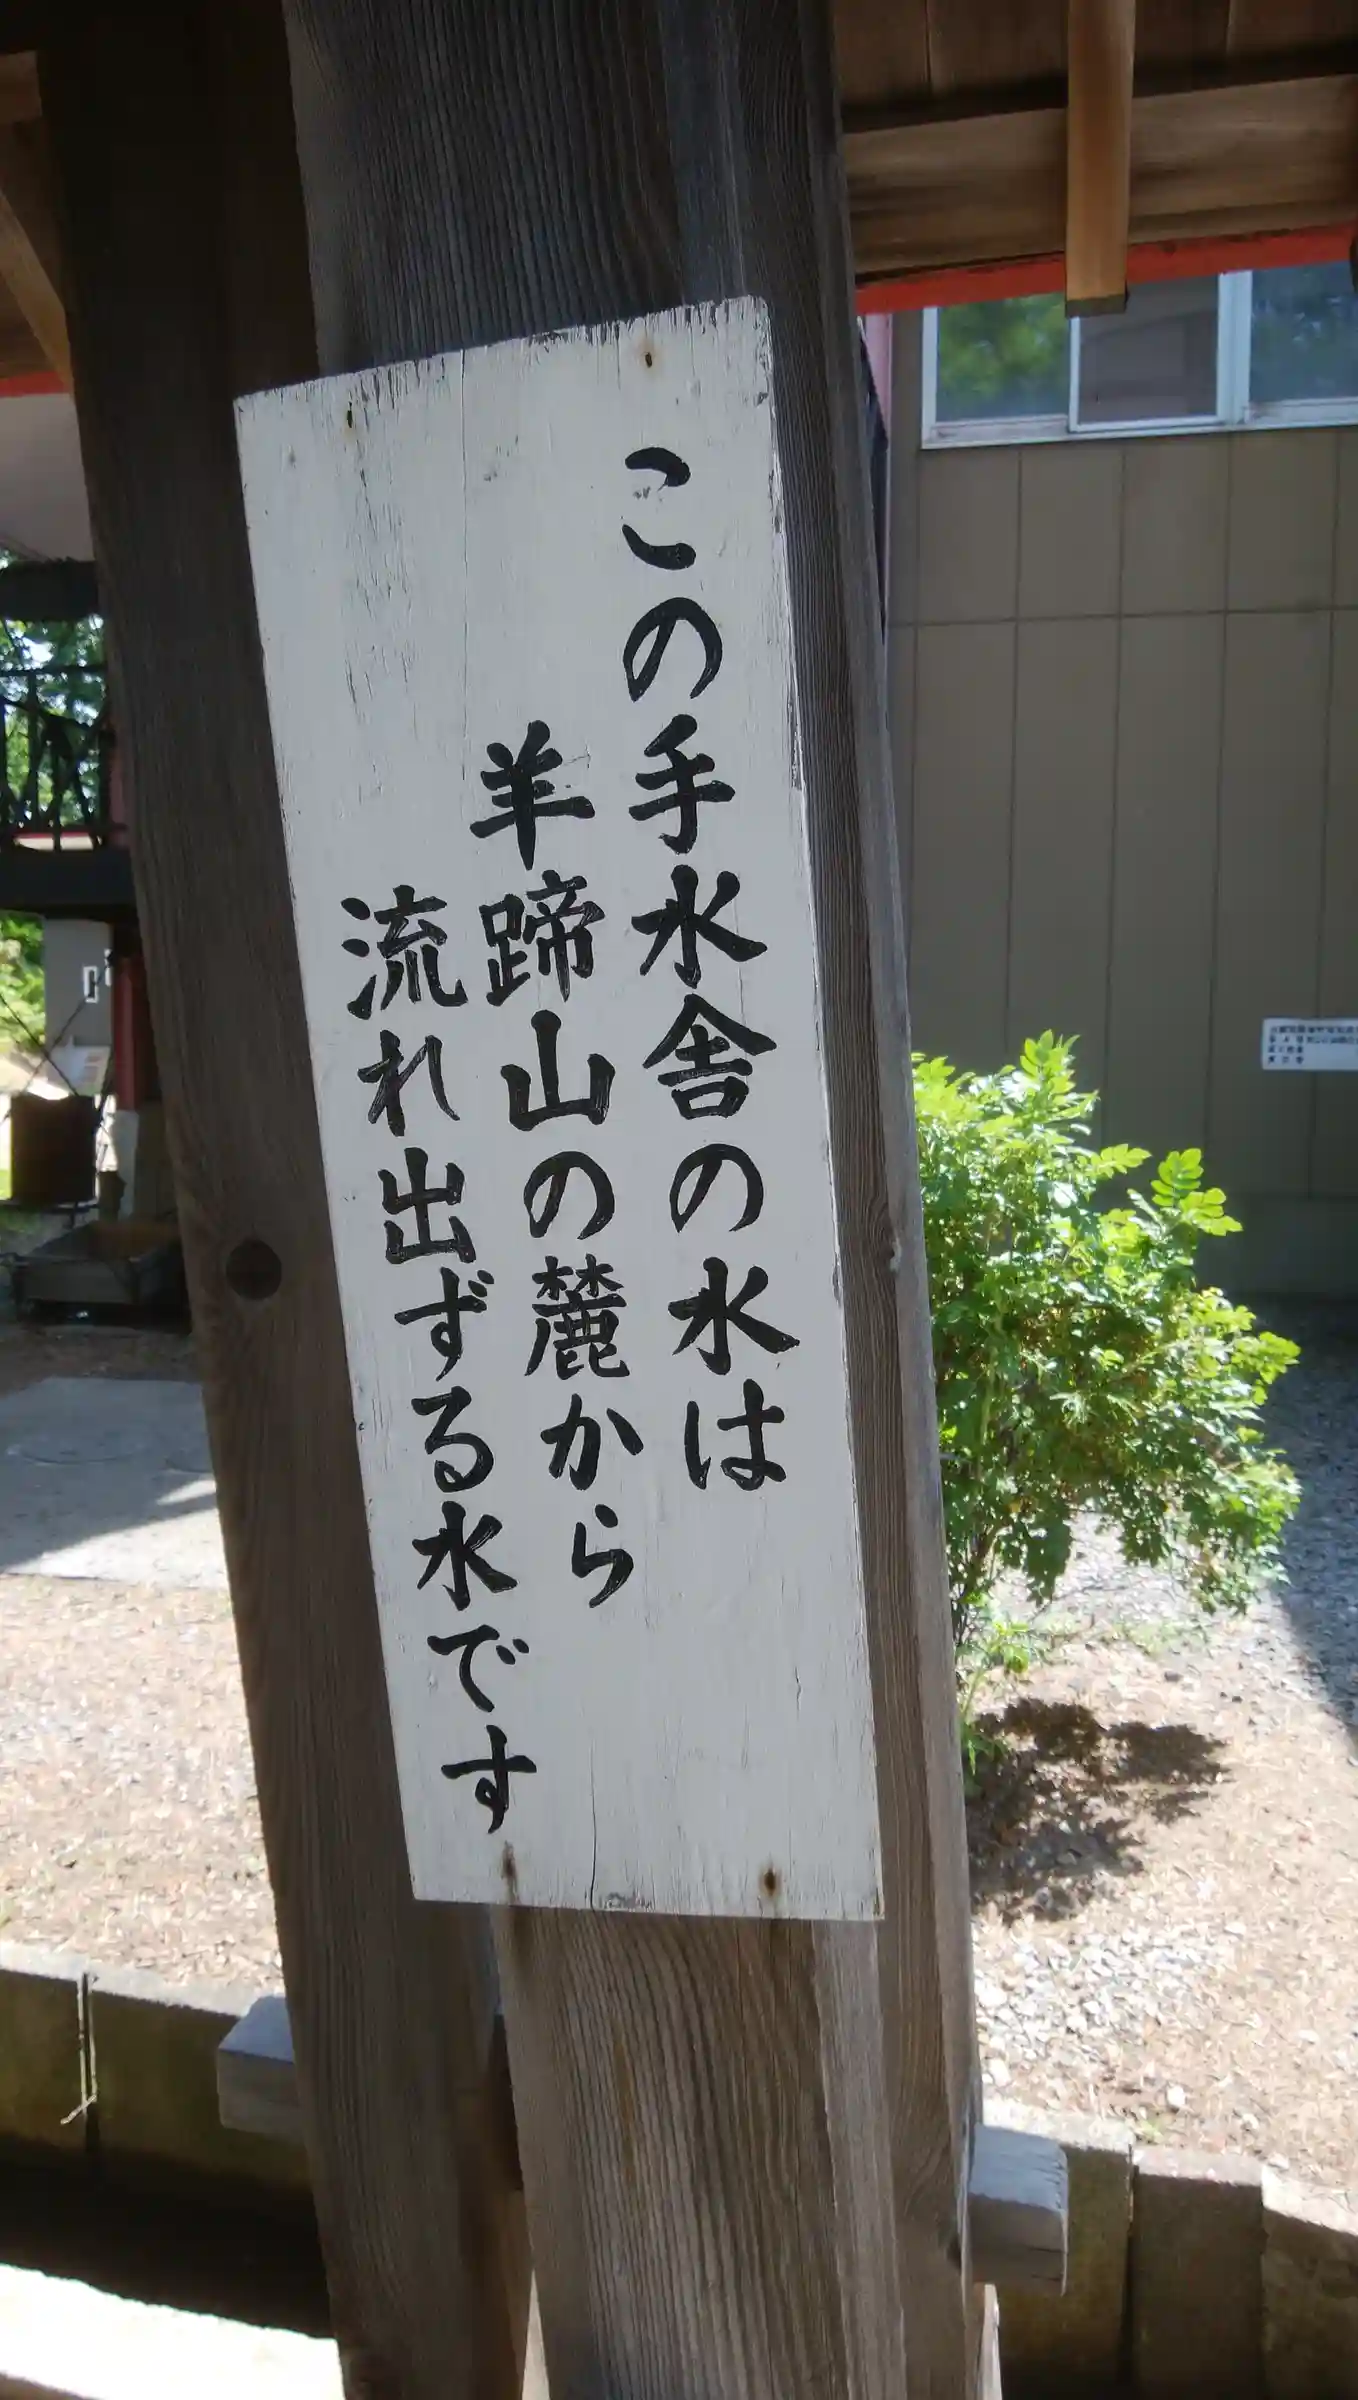 この手水舎の水は
羊蹄山の麓から
流れ出ずる水です